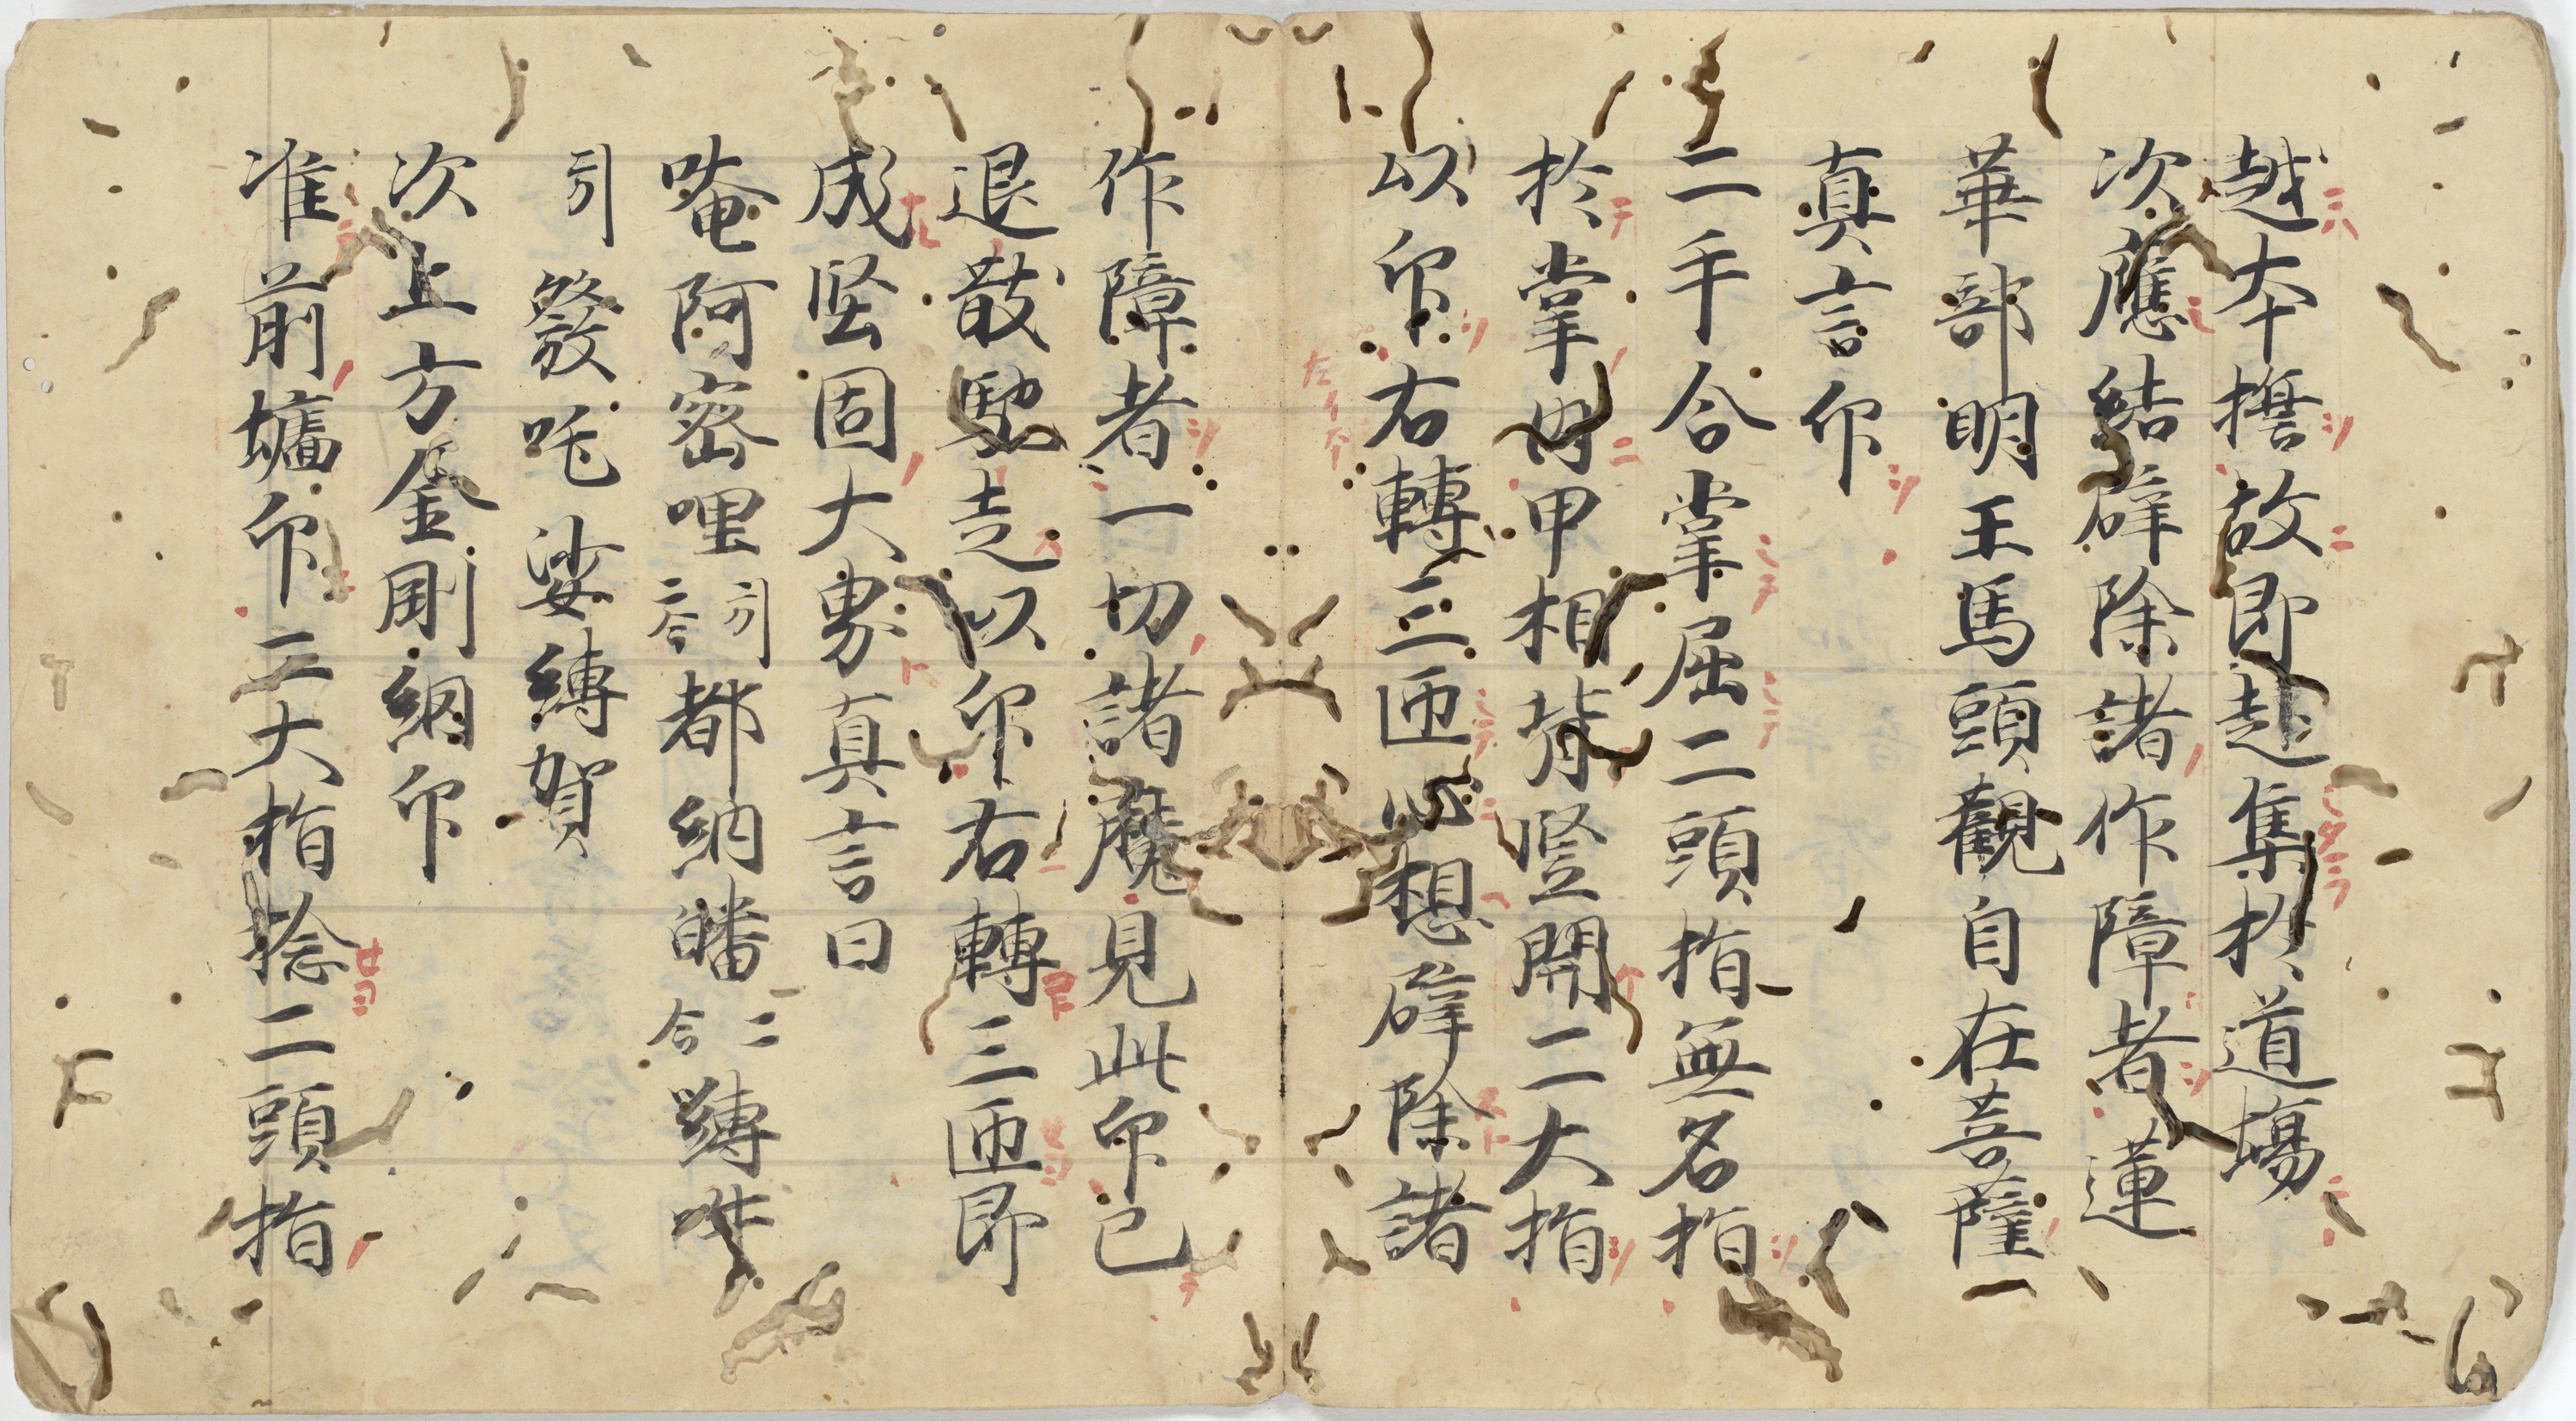 越本擔故即赴集於道場
次應結辟除諸作障者蓮
華部明王馬頭觀自在菩薩
真言印
二手合掌屈二頭指無名指
於掌内甲相背竪開二大指
以印右轉三匝心想辟除諸
作障者一切諸魔見此印已
退散馳走以印右轉三匝即
成堅固大界真言曰
唵阿密哩二合引都納皤二合嚩吽
引發吒娑縛賀
次上方金剛網印
准前墻印二大指捻二頭指